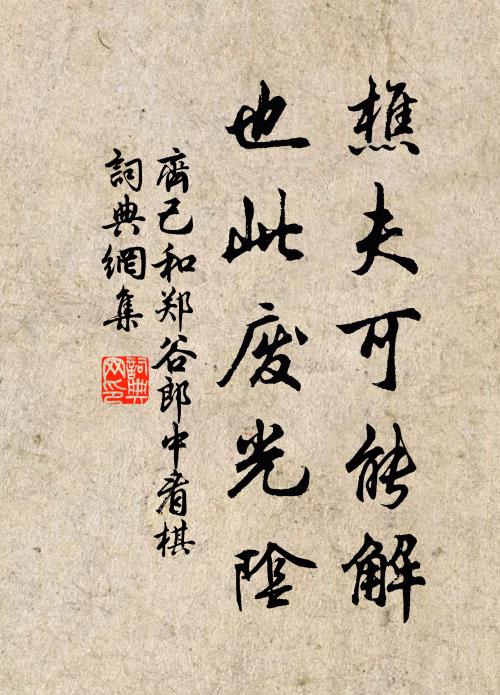 樵夫可能解
也此废光陰
齊己和郑谷郎中看棋
詞典網集
詞典網印